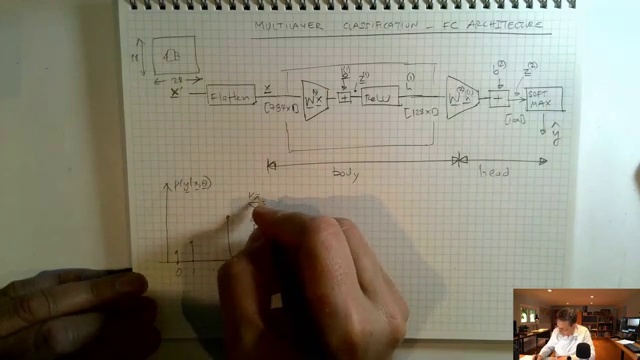 MULTILAYER CLASSIFICATION - FC ARCHITECTURE
28
28
x'
Flatten
x
[784x1]
W⁽¹⁾x
b⁽¹⁾
+
z⁽¹⁾
ReLU
h⁽¹⁾
[128x1]
W⁽²⁾h⁽¹⁾
b⁽²⁾
+
z⁽²⁾
SOFT MAX
ŷ
body
head
p(y|x,θ)
0
1